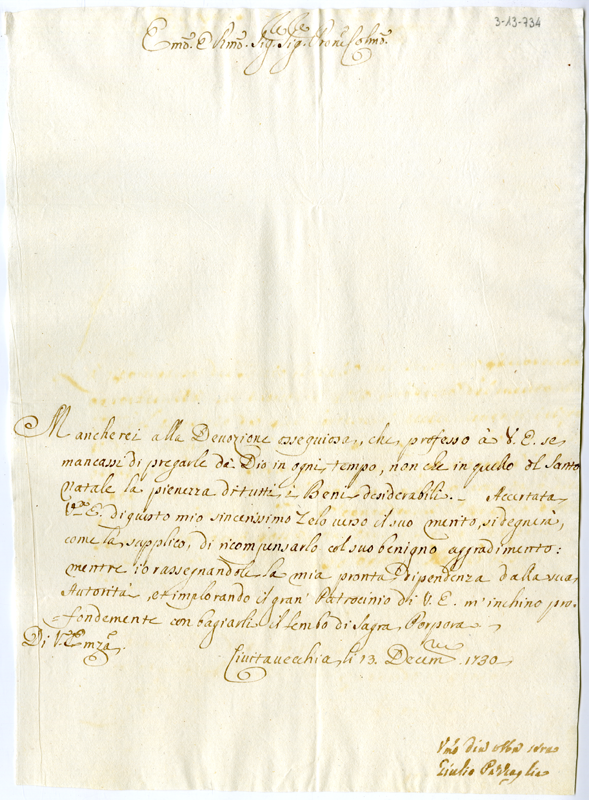 3-13-734
Emo. e Rmo. Sig. Sig. Prone Colmo.
Mancherei alla Devozione ossequiosa, che professo à V. E. se
mancassi di pregarle da Dio in ogni tempo, non che in quello del Santo
Natale la pienezza di tutti i Beni desiderabili. Accertata
V. E. di questo mio sincerissimo Zelo verso il suo merito, si degnerà,
come la supplico, di ricompensarlo col suo benigno aggradimento:
mentre io rassegnandole la mia pronta Dipendenza dalla sua
Autorità, et implorando il gran Patrocinio di V. E. m'inchino pro=
=fondemente con bagiarli il lembo di Sagra Porpora
Di V. Emza
Civitavecchia li 13. Decem 1730
Giulio Pazzaglia